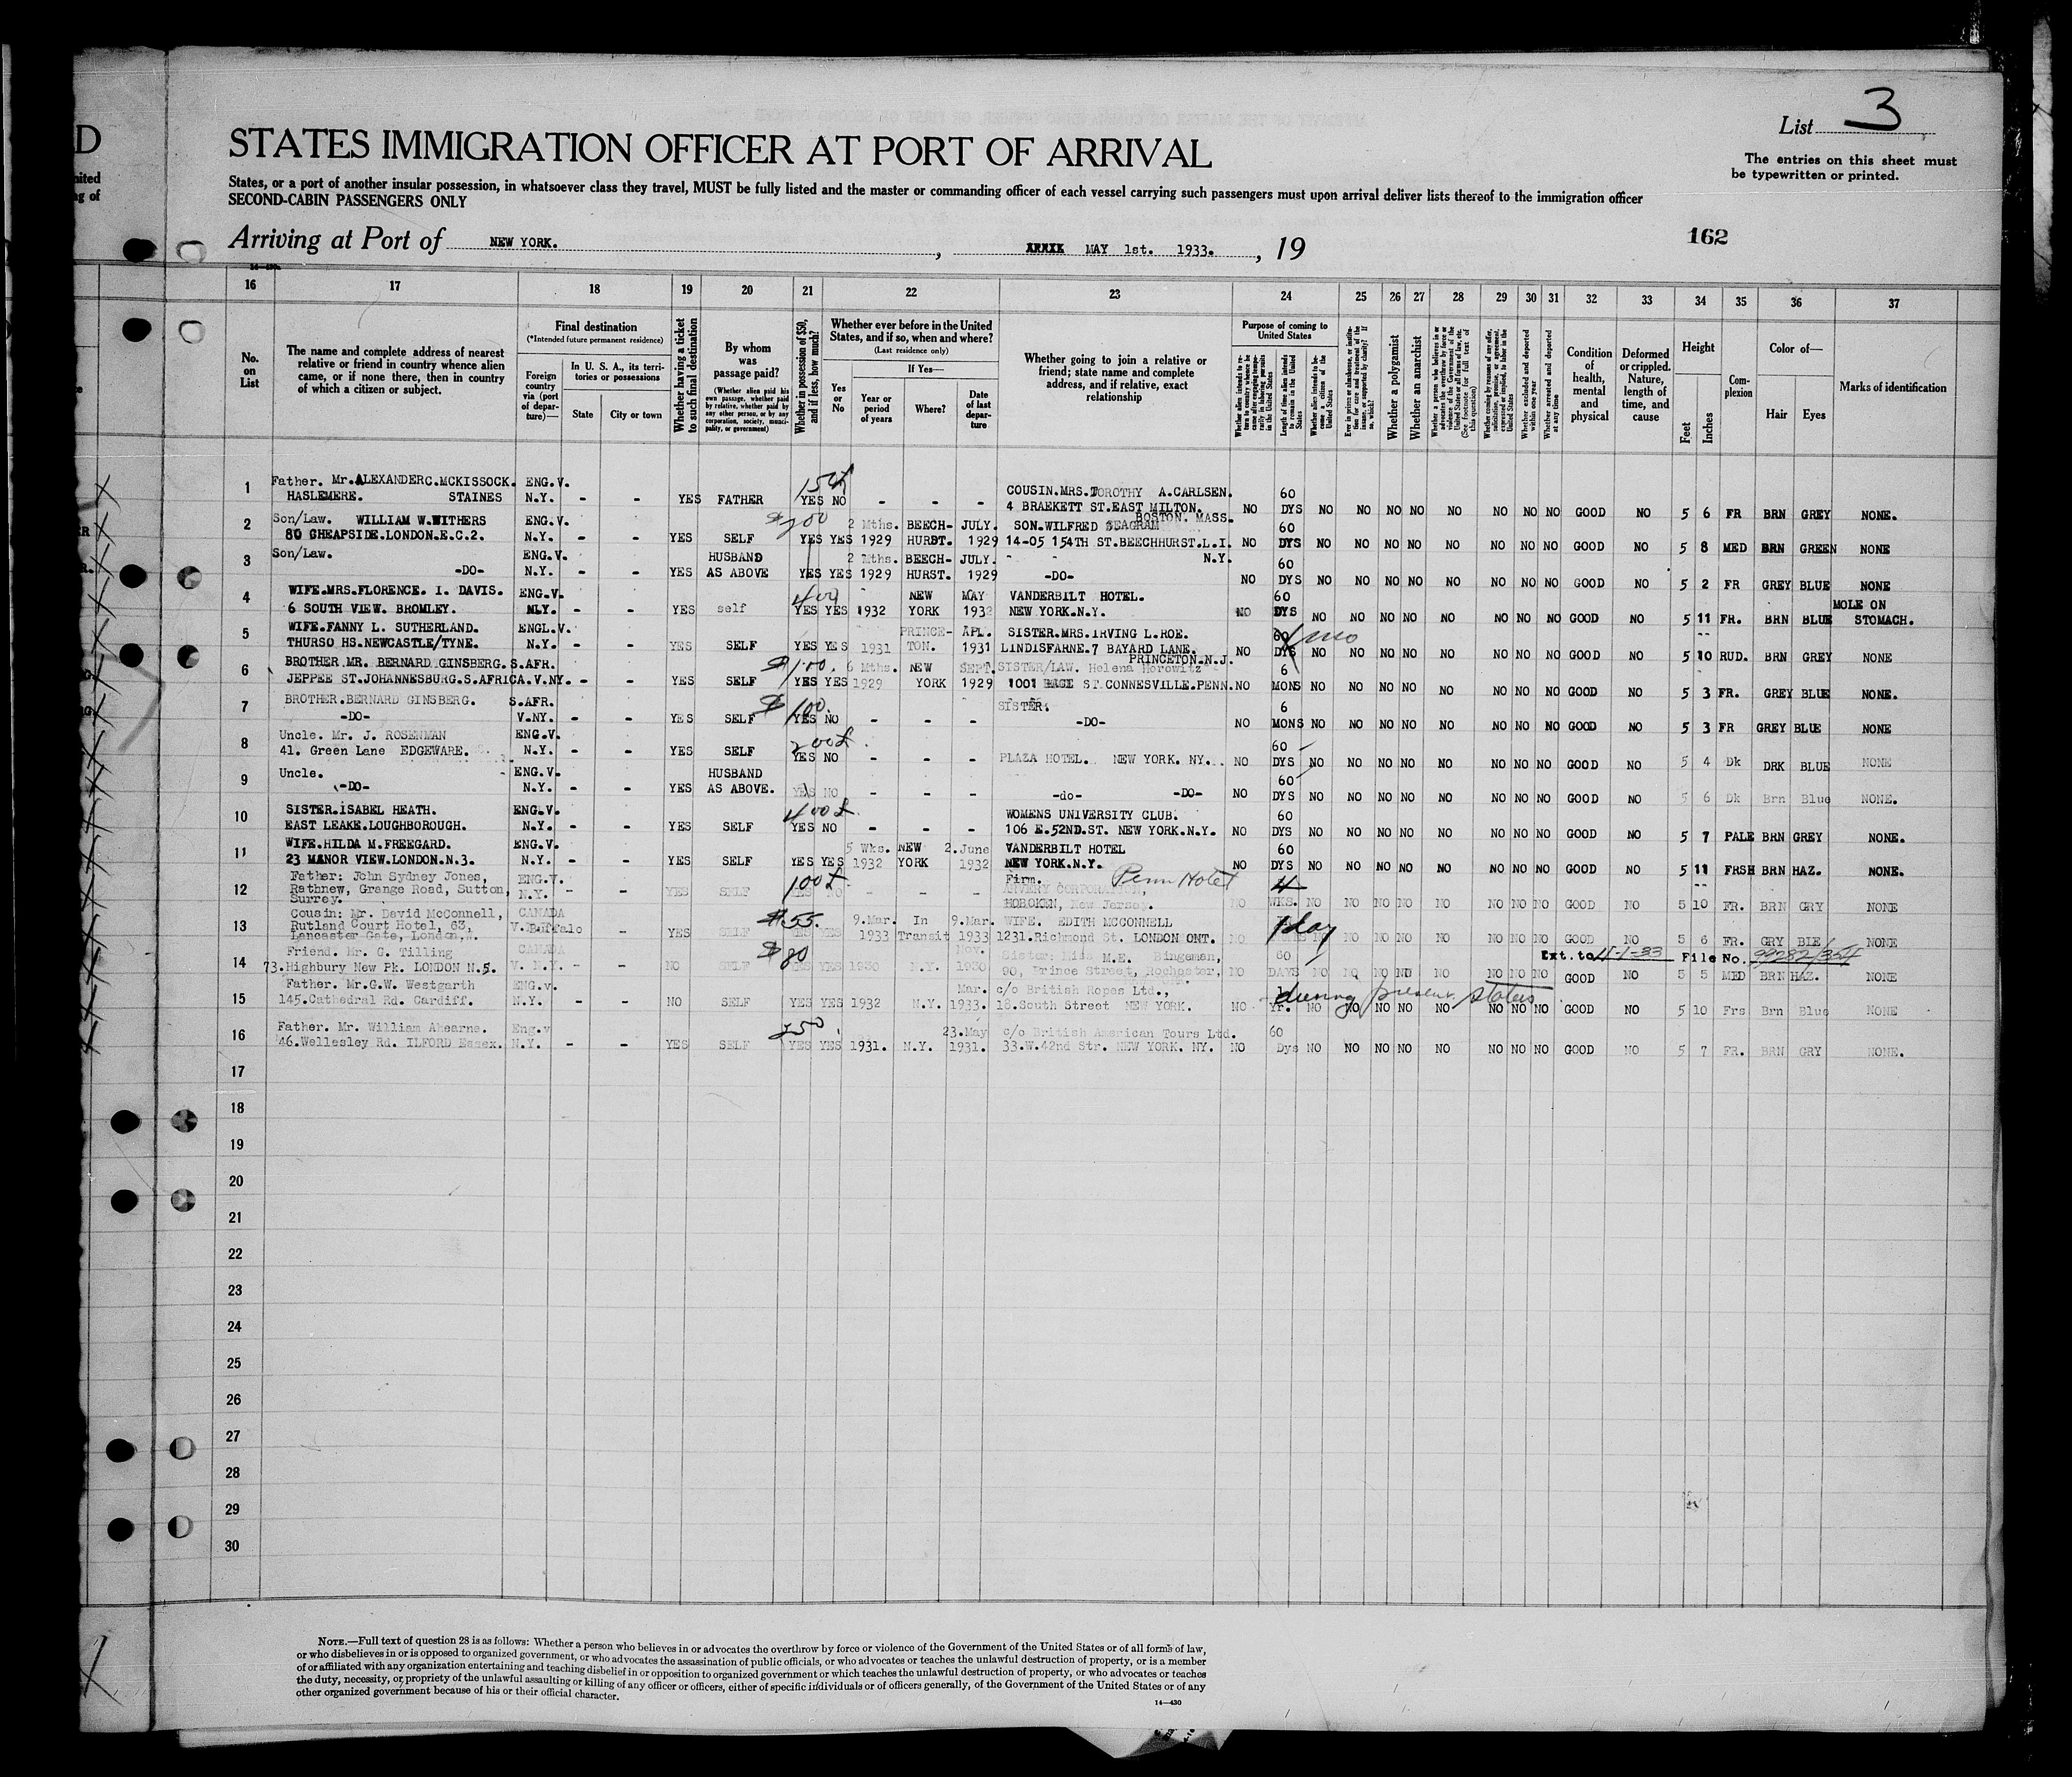 D
List 3
STATES IMMIGRATION OFFICER AT PORT OF ARRIVAL
The entries on this sheet must
be typewritten or printed.
nited
ng of
States, or a port of another insular possession, in whatsoever class they travel, MUST be fully listed and the master or commanding officer of each vessel carrying such passengers must upon arrival deliver lists thereof to the immigration officer
SECOND-CABIN PASSENGERS ONLY
162
Arriving at Port of NEW YORK. , MAY 1st. 1933. , 19
16 17 18 19 20 21 22 23 24 25 26 27 28 29 30 31 32 33 34 35 36 37
No. on List
The name and complete address of nearest relative or friend in country whence alien came, or if none there, then in country of which a citizen or subject.
Final destination
(*Intended future permanent residence)
Foreign country via (port of departure)—
In U. S. A., its territories or possessions
State
City or town
Whether having a ticket to such final destination
By whom was passage paid?
(Whether alien paid his own passage, whether paid by relative, whether paid by any other person, or by any corporation, society, municipality, or government)
Whether in possession of $50, and if less, how much?
Whether ever before in the United States, and if so, when and where?
(Last residence only)
Yes or No
If Yes—
Year or period of years
Where?
Date of last departure
Whether going to join a relative or friend; state name and complete address, and if relative, exact relationship
Purpose of coming to United States
Length of time alien intends to remain in the United States
Whether alien intends to become a citizen of the United States
Whether a polygamist
Whether an anarchist
Whether excluded and deported within one year
Whether arrested and deported at any time
Condition of health, mental and physical
Deformed or crippled. Nature, length of time, and cause
Height
Feet
Inches
Complexion
Color of—
Hair
Eyes
Marks of identification
Father. Mr. ALEXANDER C. MCKISSOCK. ENG.V. 15£ COUSIN.MRS.DOROTHY A.CARLSEN. 60
1 HASLEMERE. STAINES N.Y. - - YES FATHER YES NO - - - 4 BRAEKETT ST.EAST MILTON. NO DYS NO NO NO NO NO NO NO NO GOOD NO 5 6 FR BRN GREY NONE.
BOSTON. MASS.
Son/Law. WILLIAM W.WITHERS ENG.V. $200 2 Mths. BEECH- JULY. SON.WILFRED SEAGRAM 60
2 80 CHEAPSIDE.LONDON.E.C.2. N.Y. - - YES SELF YES YES 1929 HURST. 1929 14-05 154TH ST.BEECHHURST.L.I. NO DYS NO NO NO NO NO NO NO NO GOOD NO 5 8 MED BRN GREEN NONE
Son/Law. ENG.V. HUSBAND 2 Mths. BEECH- JULY. - - N.Y. 60
3 -DO- N.Y. - - YES AS ABOVE YES YES 1929 HURST. 1929 -DO- NO DYS NO NO NO NO NO NO NO NO GOOD NO 5 2 FR GREY BLUE NONE
WIFE.MRS.FLORENCE. I. DAVIS. ENG.V. 400 NEW MAY VANDERBILT HOTEL. 60 MOLE ON
4 6 SOUTH VIEW. BROMLEY. - - YES self YES YES 1932 YORK 1932 NEW YORK.N.Y. NO DYS NO NO NO NO NO NO NO NO GOOD NO 5 11 FR. BRN BLUE STOMACH.
WIFE.FANNY L. SUTHERLAND. ENGL.V. PRINCE- APL. SISTER.MRS.IRVING L.ROE. 60 mo
5 THURSO HS.NEWCASTLE/TYNE. N.Y. - - YES SELF YES YES 1931 TON. 1931 LINDISFARNE.7 BAYARD LANE. NO DYS NO NO NO NO NO NO NO NO GOOD NO 5 10 RUD. BRN GREY NONE
PRINCETON.N.J.
BROTHER.MR. BERNARD GINSBERG. S.AFR. $100. 6 Mths. NEW SEPT. SISTER/LAW. Helena Horowitz 6
6 JEPPEE ST.JOHANNESBURG.S.AFRICA.V.NY. - - YES SELF YES YES 1929 YORK 1929 1001 PAGE ST.CONNESVILLE.PENN. NO MONS NO NO NO NO NO NO NO NO GOOD NO 5 3 FR. GREY BLUE NONE.
BROTHER.BERNARD GINSBERG. S.AFR. $100. SISTER. 6
7 -DO- V.NY. - - YES SELF YES NO - - - -DO- NO MONS NO NO NO NO NO NO NO NO GOOD NO 5 3 FR GREY BLUE NONE
Uncle. Mr. J. ROSENMAN ENG.V. 200£ 60
8 41. Green Lane EDGEWARE. N.Y. - - YES SELF YES NO - - - PLAZA HOTEL. NEW YORK. NY. NO DYS NO NO NO NO NO NO NO NO GOOD NO 5 4 Dk DRK BLUE NONE
Uncle. ENG.V. HUSBAND 60
9 -DO- N.Y. - - YES AS ABOVE. YES NO - - - -do- -DO- NO DYS NO NO NO NO NO NO NO NO GOOD NO 5 6 Dk Brn Blue NONE.
SISTER.ISABEL HEATH. ENG.V. 400£ WOMENS UNIVERSITY CLUB. 60
10 EAST LEAKE.LOUGHBOROUGH. N.Y. - - YES SELF YES NO - - - 106 E.52ND.ST. NEW YORK.N.Y. NO DYS NO NO NO NO NO NO NO NO GOOD NO 5 7 PALE BRN GREY NONE.
WIFE.HILDA M.FREEGARD. ENG.V. 5 Wks. NEW 2.June VANDERBILT HOTEL 60
11 23 MANOR VIEW.LONDON.N.3. N.Y. - - YES SELF YES YES 1932 YORK 1932 NEW YORK.N.Y. NO DYS NO NO NO NO NO NO NO NO GOOD NO 5 11 FRSH BRN HAZ. NONE.
Father: John Sydney Jones, ENG.V. 100£ Firm. Penn Hotel 4
12 Rathnew, Grange Road, Sutton, N.Y. - - YES SELF YES NO - - - CORPORATION, WKS. NO NO NO NO NO NO NO NO GOOD NO 5 10 FR. BRN GRY NONE
Surrey. HOBOKEN, New Jersey.
Cousin: Mr. David McConnell, CANADA $55. 9.Mar. In 9.Mar. WIFE. EDITH MCCONNELL 1 day
13 Rutland Court Hotel, 63, V.Buffalo - YES SELF YES YES 1933 Transit 1933 1231.Richmond St. LONDON ONT. NO NO NO NO NO NO NO NO NO GOOD NO 5 6 FR. GRY BLE NONE
Lancaster Gate, London,W.
Friend. Mr. G. Tilling CANADA $80 Nov. Sister: Miss M.E. Bingeman, 60 Ext. to 11-1-33 File No. 99282/354
14 73.Highbury New Pk. LONDON N.5. V. N.Y. - - NO SELF YES YES 1930 N.Y. 1930 90, Prince Street, Rochester, NO DAYS NO NO NO NO NO NO NO NO GOOD NO 5 5 MED BRN HAZ. NONE
Father. Mr.G.W. Westgarth ENG.v. Mar. c/o British Ropes Ltd., 1 during present status
15 145.Cathedral Rd. Cardiff. N.Y. - - NO SELF YES YES 1932 N.Y. 1933. 18.South Street NEW YORK. NO Yr. NO NO NO NO NO NO NO NO GOOD NO 5 10 Frs Brn Blue NONE
Father. Mr. William Ahearne. Eng.v 250. 23.May c/o British American Tours Ltd. 60
16 46.Wellesley Rd. ILFORD Essex. N.Y. - - YES SELF YES YES 1931. N.Y. 1931. 33.W.42nd Str. NEW YORK. NY. NO Dys NO NO NO NO NO NO NO NO GOOD NO 5 7 FR. BRN GRY NONE.
17
18
19
20
21
22
23
24
25
26
27
28
29
30
NOTE.—Full text of question 28 is as follows: Whether a person who believes in or advocates the overthrow by force or violence of the Government of the United States or of all forms of law,
or who disbelieves in or is opposed to organized government, or who advocates the assassination of public officials, or who advocates or teaches the unlawful destruction of property, or is a member
of or affiliated with any organization entertaining and teaching disbelief in or opposition to organized government or which teaches the unlawful destruction of property, or who advocates or teaches
the duty, necessity, or propriety of the unlawful assaulting or killing of any officer or officers, either of specific individuals or of officers generally, of the Government of the United States or of any
other organized government because of his or their official character.
14—430